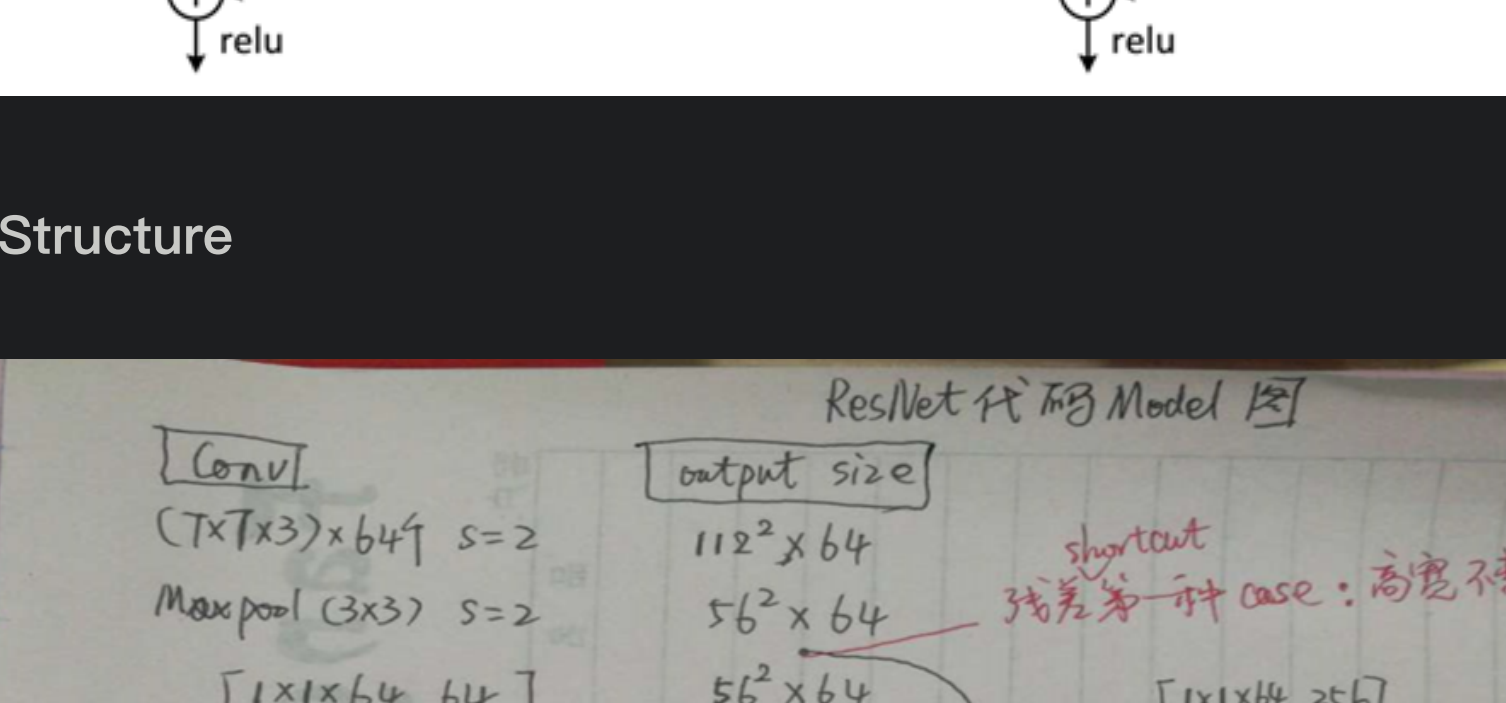 relu relu
Structure
ResNet 代码 Model 图
Conv output size
(7×7×3)×64个 s=2 112²×64
shortcut
Maxpool (3×3) s=2 56²×64 残差第一种 case：高宽不
[1×1×64 64] 56²×64 [1×1×64 256]